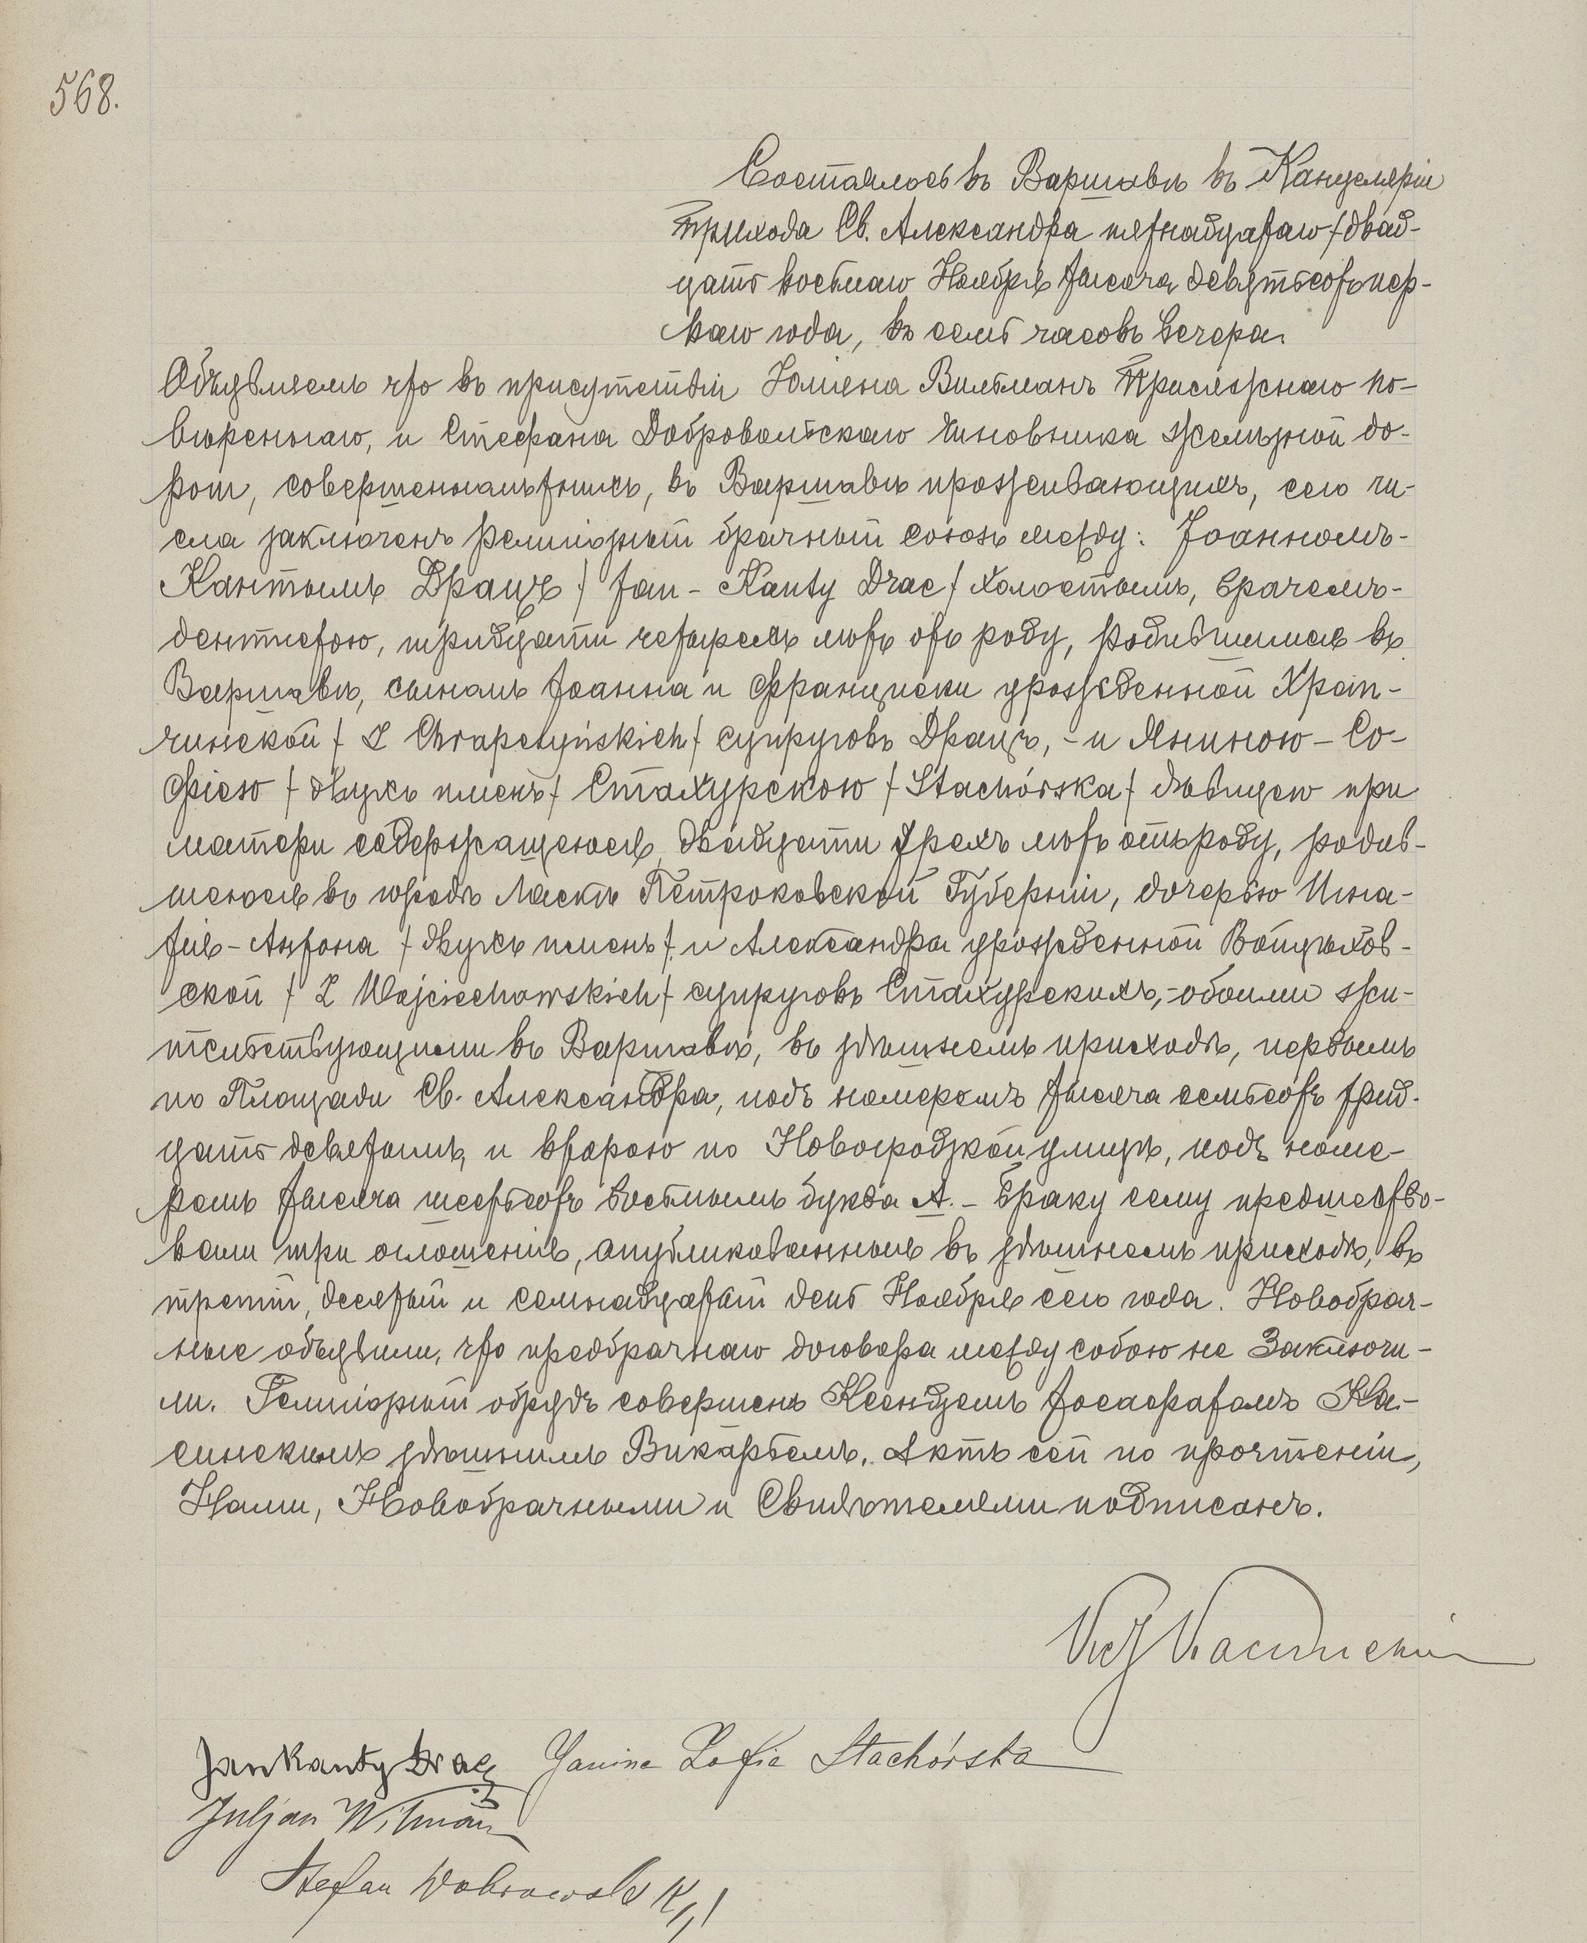 568.
Состоялось въ Варшавѣ въ Канцеляріи
Прихода Св. Александра пятнадцатаго / двад-
цать восьмаго Ноября тысяча девятьсотъ пер-
ваго года, въ семь часовъ вечера.
Объявляемъ что въ присутствіи Юліана Вильманъ Присяжнаго По-
вѣреннаго, и Стефана Добровольскаго чиновника желѣзной до-
роги, совершеннолѣтнихъ, въ Варшавѣ проживающихъ, сего чи-
сла заключенъ религіозный брачный союзъ между: Іоанномъ-
Кантымъ Драцъ / Jan - Kanty Drac / холостымъ, врачемъ-
дентистою, тридцати четырехъ лѣтъ отъ роду, родившимся въ
Варшавѣ, сыномъ Іоанна и Францишки урожденной Храп-
чинской / z Chrapczyńskich / супруговъ Драцъ, - и Яниною - Со-
фіею / двухъ именъ / Стахурскою / Stachórska / дѣвицею при
матери содержащеюся, двадцати трехъ лѣтъ отъ роду, родив-
шеюся въ городѣ Ласкѣ Петроковской Губерніи, дочерью Игна-
тія - Антона / двухъ именъ / и Александры урожденной Войцѣхов-
ской / z Wojciechowskich / супруговъ Стахурскихъ, - обоими жи-
тельствующими въ Варшавѣ, въ здѣшнемъ приходѣ, первымъ
по Площади Св. Александра, подъ номеромъ тысяча семьсотъ трид-
цать девятымъ, и второю по Новогродзкой улицѣ, подъ номе-
ромъ тысяча шестьсотъ восьмымъ буква А. - Браку сему предшество-
вали три оглашенія, опубликованныя въ здѣшнемъ приходѣ, въ
третій, десятый и семнадцатый день Ноября сего года. Новобрач-
ные объявили, что предбрачнаго договора между собою не заключи-
ли. Религіозный обрядъ совершенъ Ксендземъ Іосафатомъ Ка-
синскимъ здѣшнимъ Викаріемъ. Актъ сей по прочтеніи,
Нами, Новобрачными и Свидѣтелями подписанъ.
Jan Kanty Drac Janina Zofia Stachórska
Juljan Wilman
Stefan Dobrowolski